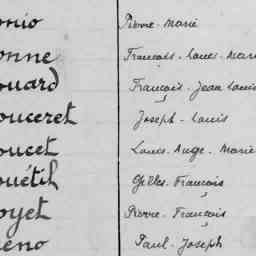 onio Pierre-Marie
onne François-Louis-Marie
ouard François-Jean Louis
ouceret Joseph-Louis
oucet Louis-Ange-Marie
ouétil Gilles-François
oyet Pierre-François
reno Paul-Joseph